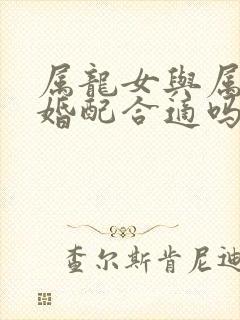 属龍女與属
婚配合適吗
查尔斯肯尼迪